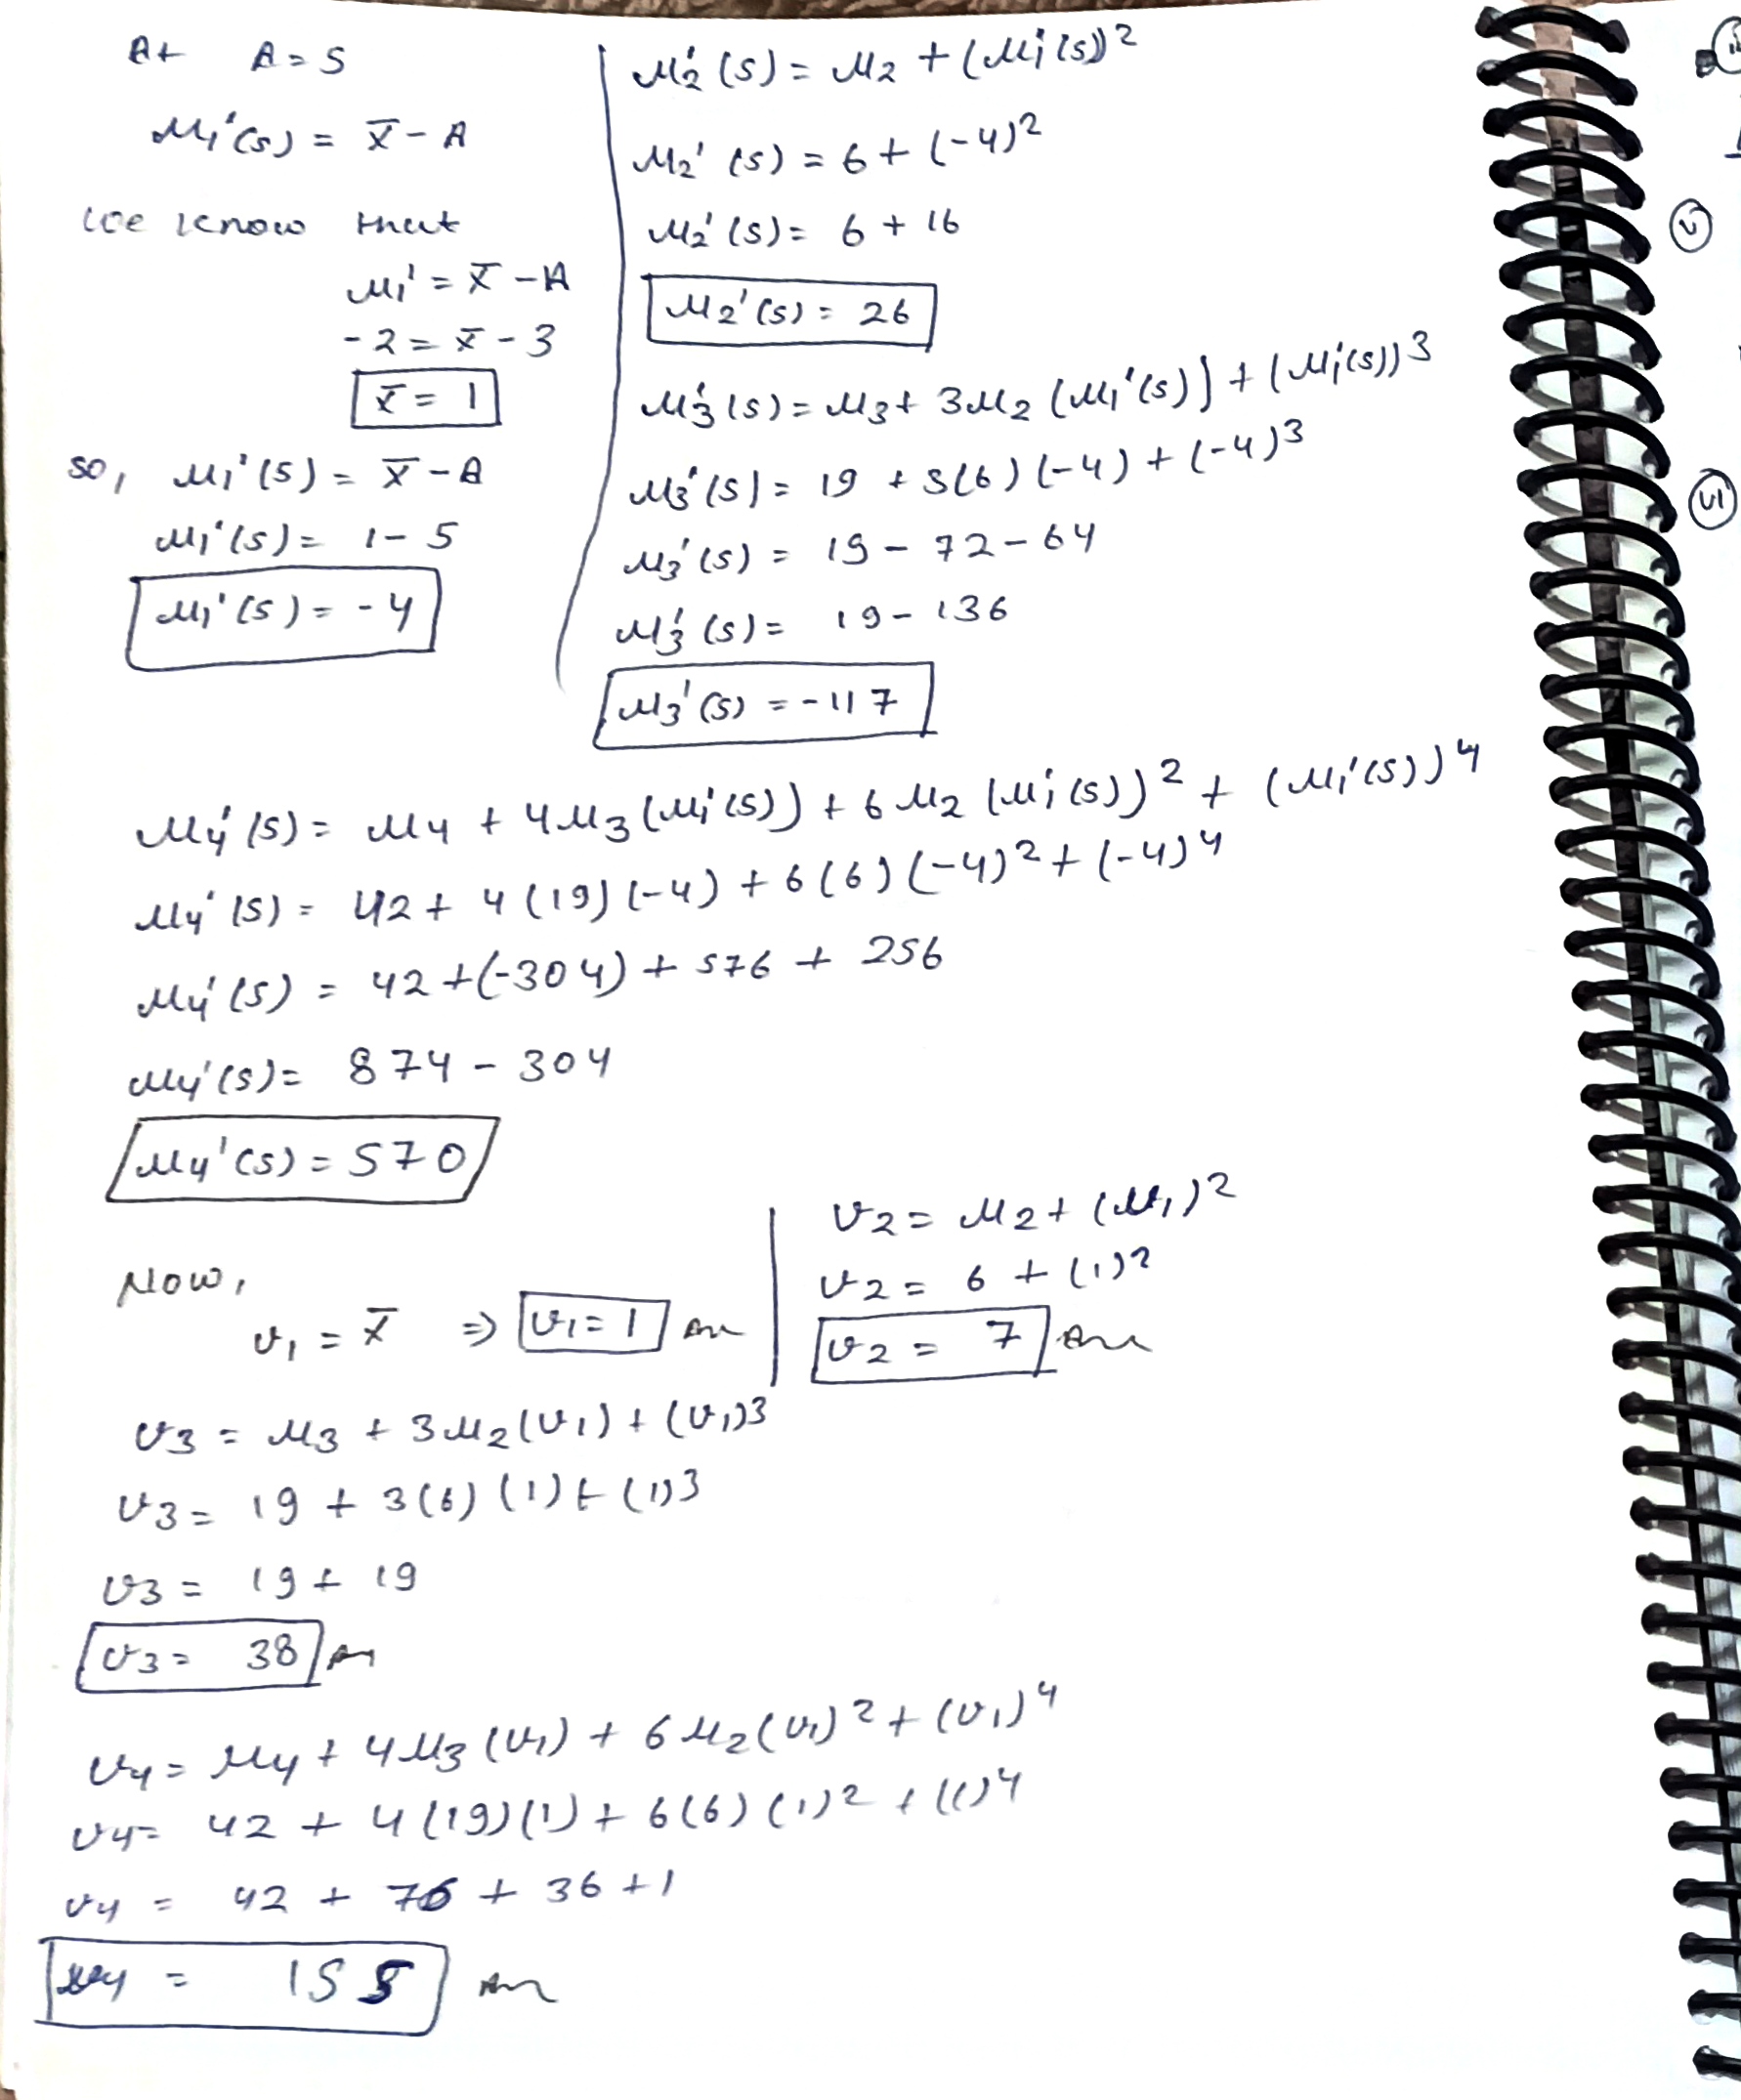 At A = 5
μ₁'(5) = x̄ - A
we know that
μ₁' = x̄ - A
-2 = x̄ - 3
x̄ = 1
so, μ₁'(5) = x̄ - A
μ₁'(5) = 1 - 5
μ₁'(5) = -4
μ₂'(5) = μ₂ + (μ₁'(5))²
μ₂'(5) = 6 + (-4)²
μ₂'(5) = 6 + 16
μ₂'(5) = 26
μ₃'(5) = μ₃ + 3μ₂(μ₁'(5)) + (μ₁'(5))³
μ₃'(5) = 19 + 3(6)(-4) + (-4)³
μ₃'(5) = 19 - 72 - 64
μ₃'(5) = 19 - 136
μ₃'(5) = -117
μ₄'(5) = μ₄ + 4μ₃(μ₁'(5)) + 6μ₂(μ₁'(5))² + (μ₁'(5))⁴
μ₄'(5) = 42 + 4(19)(-4) + 6(6)(-4)² + (-4)⁴
μ₄'(5) = 42 + (-304) + 576 + 256
μ₄'(5) = 874 - 304
μ₄'(5) = 570
Now,
v₁ = x̄ ⇒ v₁ = 1 Ans
v₂ = μ₂ + (v₁)²
v₂ = 6 + (1)²
v₂ = 7 Ans
v₃ = μ₃ + 3μ₂(v₁) + (v₁)³
v₃ = 19 + 3(6)(1) + (1)³
v₃ = 19 + 19
v₃ = 38 Ans
v₄ = μ₄ + 4μ₃(v₁) + 6μ₂(v₁)² + (v₁)⁴
v₄ = 42 + 4(19)(1) + 6(6)(1)² + (1)⁴
v₄ = 42 + 76 + 36 + 1
v₄ = 155 Ans
(v)
(vi)